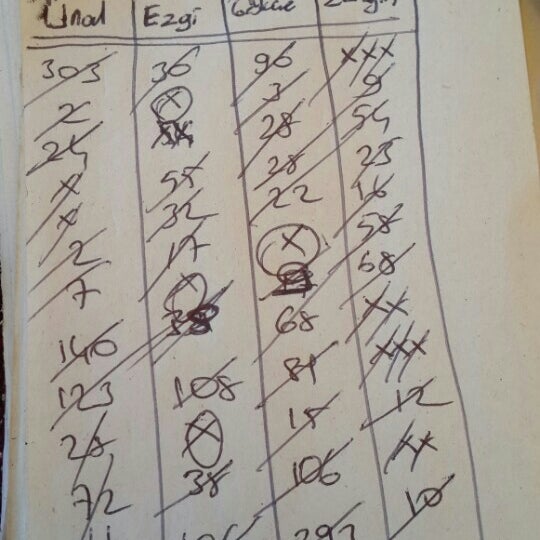 Ünal Ezgi Gökçe
303 36 96 XXX
2 X 3 9
24 28 54
X 55 28 23
X 32 22 16
2 17 X 58
7 X 68
140 68 XX
123 108 81 XXX
28 X 15 12
72 38 106 XX
10